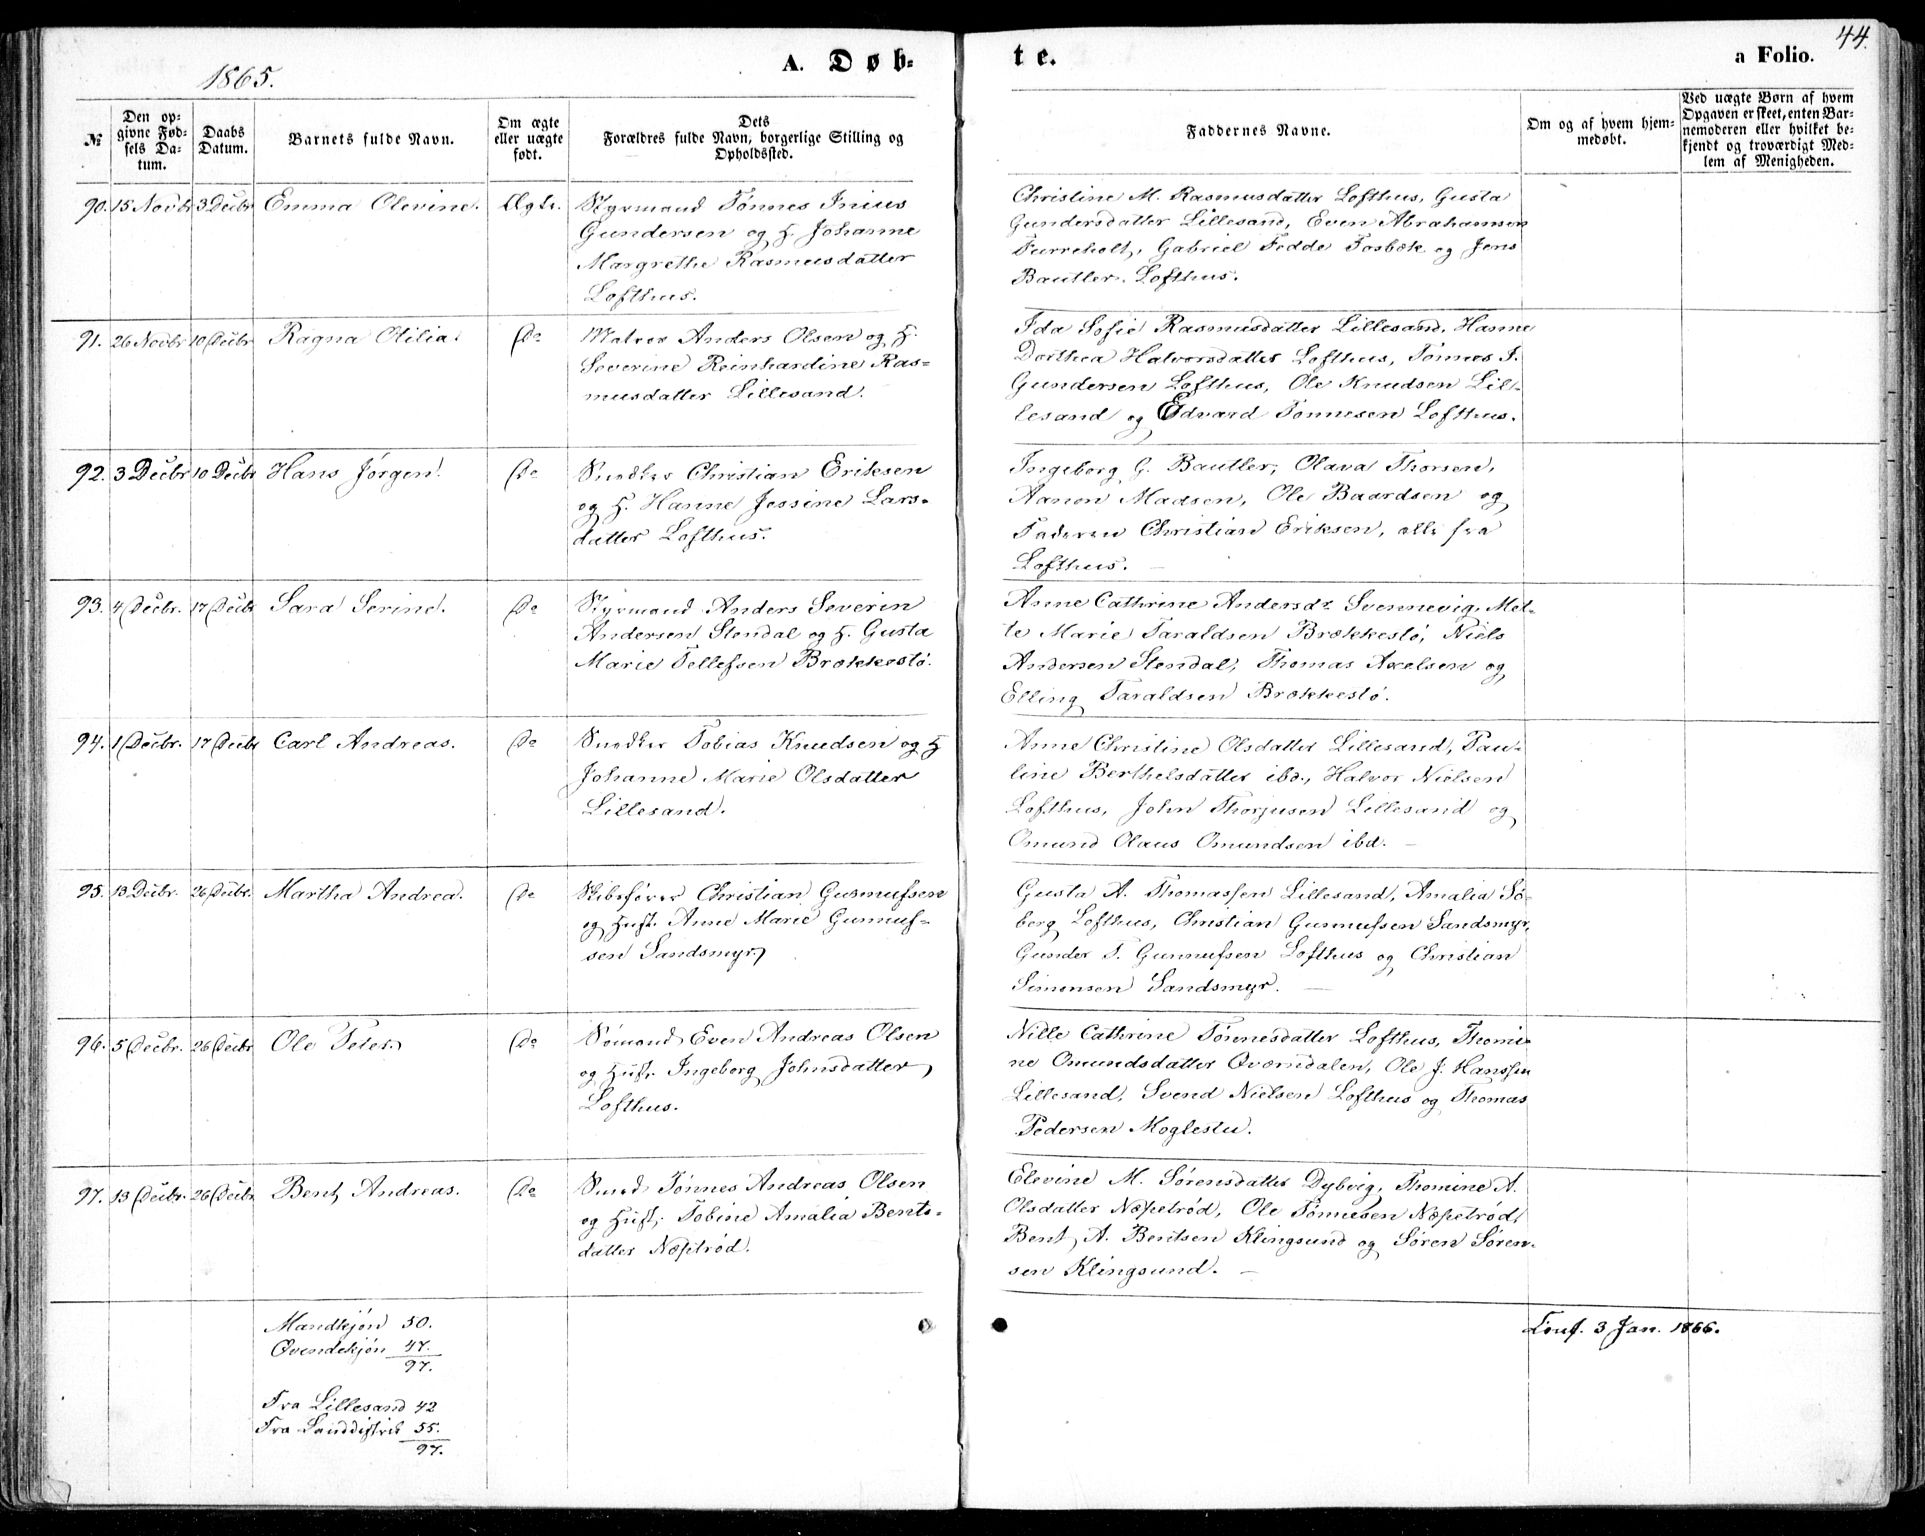 44.
1865.
A. Døb-
te.
a Folio.
№
Den op-
givne Fød-
sels Da-
tum.
Daabs
Datum.
Barnets fulde Navn.
Om ægte
eller uægte
født.
Dets
Forældres fulde Navn, borgerlige Stilling og
Opholdssted.
Faddernes Navne.
Om og af hvem hjem-
medøbt.
Ved uægte Børn af hvem
Opgaven er skeet, enten Bar-
nemoderen eller hvilket be-
kjendt og troværdigt Med-
lem af Menigheden.
90. 15 Novbr 3 Decbr Emma Olevine. Ægte.
Styrmand Tönnes Inius
Gundersen og H. Johanne
Margrethe Rasmusdatter
Lofthus.
Christine M. Rasmusdatter Lofthus, Gusta
Gundersdatter Lillesand, Even Abrahamsen
Furreholt, Gabriel Fedde Fosbæk og Jens
Bautler Lofthus.
91. 26 Novbr 10 Decbr Ragna Otilia. Do
Matros Anders Olsen og H.
Severine Reinhardine Ras-
musdatter Lillesand.
Ida Sofie Rasmusdatter Lillesand, Hanne
Dorthea Halvorsdatter Lofthus, Tönnes I.
Gundersen Lofthus, Ole Knudsen Lil-
lesand og Edvard Tönnesen Lofthus.
92. 3 Decbr 10 Decbr Hans Jørgen. Do
Snedker Christian Eriksen
og H. Hanne Jessine Lars-
datter Lofthus.
Ingeborg G. Bautler, Olava Thorsen,
Aanon Madsen, Ole Baardsen og
Faderen Christian Eriksen, alle fra
Lofthus.
93. 4 Decbr. 17 Decbr Sara Serine. Do
Styrmand Anders Severin
Andersen Stendal og H. Gusta
Marie Tellefsen Brækkestö.
Anne Cathrine Andersdr Svennevig, Met-
te Marie Taraldsen Brækkestö, Niels
Andersen Stendal, Thomas Axelsen og
Elling Taraldsen Brækkestö.
94. 1 Decbr. 17 Decbr Carl Andreas. Do
Snedker Tobias Knudsen og H
Johanne Marie Olsdatter
Lillesand.
Anne Christine Olsdatter Lillesand, Pau-
line Berthelsdatter ibd., Halvor Nielsen
Lofthus, John Thorjusen Lillesand og
Omund Olaus Omundsen ibd.
95. 13 Decbr. 26 Decbr. Martha Andrea. Do
Skibsfører Christian Gunnufsen
og Hust. Anne Marie Gunnuf-
sen Sandsmyr
Gusta A. Thomassen Lillesand, Amalia Sö-
berg Lofthus, Christian Gunnufsen Sandsmyr,
Gunder T. Gunnufsen Lofthus og Christian
Simonsen Sandsmyr.
96. 5 Decbr. 26 Decbr Ole Peter Do
Sömand Even Andreas Olsen
og Hust. Ingeborg Johnsdatter
Lofthus.
Nille Cathrine Tönnesdatter Lofthus, Thomi-
ne Omundsdatter Qværndalen, Ole J. Hanssen
Lillesand, Svend Nielsen Lofthus og Thomas
Pedersen Moglestu.
97. 13 Decbr. 26 Decbr Bent Andreas. Do
Smed Tönnes Andreas Olsen
og Hust. Tobine Amalia Bents-
datter Næsetrød.
Elevine M. Sörensdatter Dybvig, Thomine A.
Olsdatter Næsetrød, Ole Tönnesen Næsetrød,
Bent A. Bentsen Klingsund og Sören Sören-
sen Klingsund.
Mandkjön 50.
Qvindekjön 47.
97.
Fra Lillesand 42
Fra Landdistrict 55.
97.
Conf. 3 Jan. 1866.